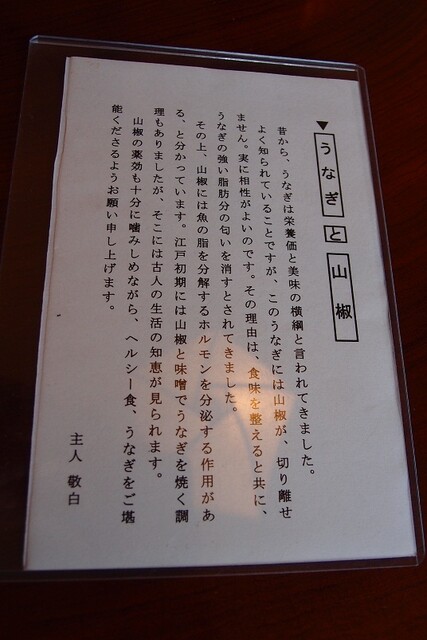 ▼うなぎと山椒
昔から、うなぎは栄養価と美味の横綱と言われてきました。
よく知られていることですが、このうなぎには山椒が、切り離せ
ません。実に相性がよいのです。その理由は、食味を整えると共に、
うなぎの強い脂肪分の匂いを消すとされてきました。
その上、山椒には魚の脂を分解するホルモンを分泌する作用があ
る、と分かっています。江戸初期には山椒と味噌でうなぎを焼く調
理もありましたが、そこには古人の生活の知恵が見られます。
山椒の薬効も十分に噛みしめながら、ヘルシー食、うなぎをご堪
能くださるようお願い申し上げます。
主人 敬白